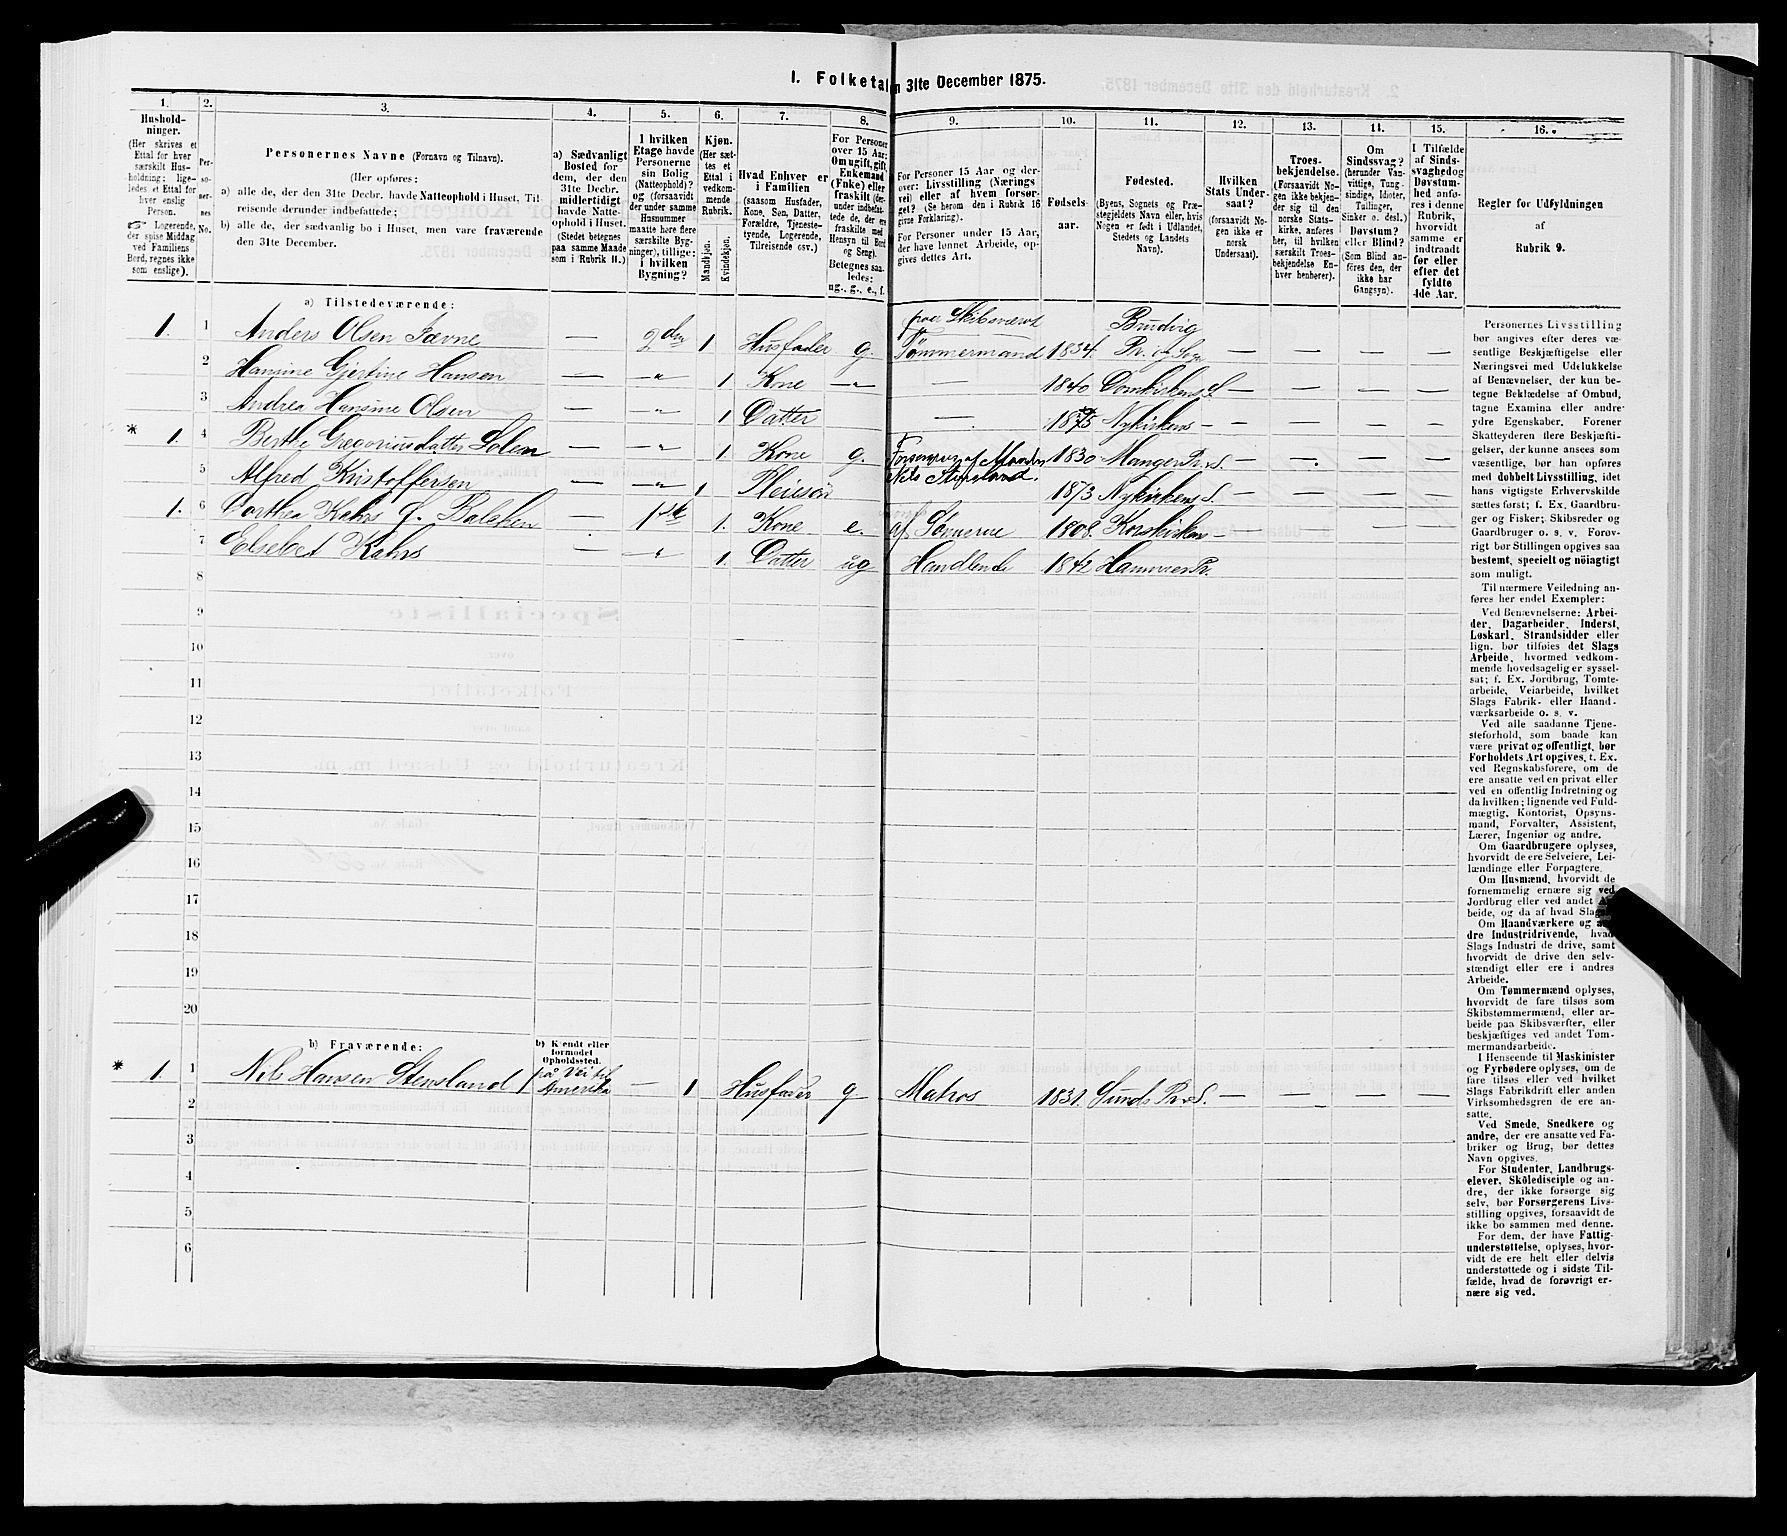 1. Folketal
n 31te December 1875.
1. 2. 3. 4. 5. 6. 7. 8. 9. 10. 11. 12. 13. 14. 15. 16.
Hushold-
ninger.
(Her skrives et
Ettal for hver
særskilt Hus-
holdning; lige-
ledes et Ettal for
hver enslig
Person.
Logerende,
der spise Middag
ved Familiens
Bord, regnes ikke
som enslige).
Per-
so-
ner-
nes
No.
Personernes Navne (Fornavn og Tilnavn).
(Her opføres:
a) alle de, der den 31te Decbr. havde Natteophold i Huset, Til-
reisende derunder indbefattede;
b) alle de, der sædvanlig bo i Huset, men vare fraværende
den 31te December.
a) Sædvanligt
Bosted for
dem, der den
31te Decbr.
midlertidigt
havde Natte-
ophold i Huset.
(Stedet betegnes
paa samme Maade
som i Rubrik 11.)
I hvilken
Etage havde
Personerne
sin Bolig
(Natteophold)?
og (forsaavidt
der under samme
Husnummer
maatte høre flere
særskilte Byg-
ninger), tillige:
i hvilken
Bygning?
Kjøn.
(Her sæt-
tes et
Ettal i
vedkom-
mende
Rubrik.
Mandkjøn.
Kvindekjøn.
Hvad Enhver er
i Familien
(saasom Husfader,
Kone, Søn, Datter,
Forældre, Tjeneste-
tyende, Logerende,
Tilreisende osv.)
For Personer
over 15 Aar:
Om ugift, gift,
Enkemand
(Enke) eller
fraskilt (der-
under indbefat-
tede de, der ere
fraskilte med
Hensyn til Bord
og Seng).
Betegnes saa-
ledes:
ug., g., e., f.
For Personer 15 Aar og der-
over: Livsstilling (Nærings
vei) eller af hvem forsør-
get? (Se herom den i Rubrik 16
givne Forklaring).
For Personer under 15 Aar,
der have lønnet Arbeide, op-
gives dettes Art.
Fødsels-
aar.
Fødested.
(Byens, Sognets og Præ-
stegjeldets Navn eller, hvis
Nogen er født i Udlandet,
Stedets og Landets
Navn).
Hvilken
Stats Under-
saat?
(forsaavidt No-
gen ikke er
norsk
Undersaat).
Troes-
bekjendelse.
(Forsaavidt No-
gen ikke bekjen-
der sig til den
norske Stats-
kirke, anføres
her, til hvilken
særskilt Troes-
bekjendelse En-
hver henhører).
Om
Sindssvag?
(herunder Van-
vittige, Tung-
sindige, Idioter,
Tullinger,
Sinker o. desl.)
Døvstum?
eller Blind?
(Som Blind an-
føres den, der
ikke har
Gangsyn).
I Tilfælde
af Sinds-
svaghed og
Døvstum-
hed anfø-
res i denne
Rubrik,
hvorvidt
samme er
indtraadt
før eller
efter det
fyldte
4de Aar.
Regler for Udfyldningen
af
Rubrik 9.
a) Tilstedeværende:
1. 1 Anders Olsen Tævne — 2den 1 Husfader g. paa Skibsværft Tømmermand 1834. Bruvig Pr. og Sogn — — — —
2 Hansine Gjertine Hansen — " 1 Kone " — 1840 Domkirkens S. — — — —
3 Andrea Hansine Olsen — " 1 Datter — 1875 Nykirkens — — — — —
* 1. 4 Berthe Gregoriusdatter Solem — " 1. Kone g. Forsørges af Manden Nils Stensland. 1830 Manger Pr. S. — — — —
5 Alfred Kristoffersen — " 1 Pleiesøn 1873 Nykirkens S. — — — —
1. 6 Dorthea Kahrs f. Balchen — 1ste 1. Kone e. af Sønnerne 1808. Korskirkens —
7 Elsebet Kahrs — " 1. Datter ug Handlende 1842 Hammer Pr.
8
9
10
11
12
13
14
15
16
17
18
19
20
b) Fraværende:
b) Kjendt eller
formodet
Opholdssted.
* 1. 1 Nils Hansen Stensland på Vei til Amerika — 1 Husfader g Matros 1831. Sunds Pr. S. — — — —
2
3
4
5
6
Personernes Livsstilling
bør angives efter deres væ-
sentlige Beskjæftigelse eller
Næringsvei med Udelukkelse
af Benævnelser, der kun be-
tegne Beklædelse af Ombud,
tagne Examina eller andre
ydre Egenskaber. Forener
Skatteyderen flere Beskjæfti-
gelser, der kunne ansees som
væsentlige, bør han opføres
med dobbelt Livsstilling, idet
hans vigtigste Erhvervskilde
sættes først; f. Ex. Gaardbru-
ger og Fisker; Skibsreder og
Gaardbruger o. s. v. Forøv-
rigt bør Stillingen opgives saa
bestemt, specielt og nöiagtigt
som muligt.
Til nærmere Veiledning an-
føres her endel Exempler:
Ved Benævnelserne: Arbei-
der, Dagarbeider, Inderst,
Løskarl, Strandsidder eller
lign. bør tilføies det Slags
Arbeide, hvormed vedkom-
mende hovedsagelig er syssel-
sat; f. Ex. Jordbrug, Tomte-
arbeide, Veiarbeide, hvilket
Slags Fabrik- eller Haand-
værksarbeide o. s. v.
Ved alle saadanne Tjene-
steforhold, som baade kan
være privat og offentligt, bør
Forholdets Art opgives, f. Ex.
ved Regnskabsførere, om de
ere ansatte ved en privat eller
ved en offentlig Indretning og
da hvilken; lignende ved Fuld-
mægtig, Kontorist, Opsyns-
mand, Forvalter, Assistent,
Lærer, Ingeniør og andre.
Om Gaardbrugere oplyses,
hvorvidt de ere Selveiere, Lei-
lændinge eller Forpagtere.
Om Husmænd, hvorvidt de
fornemmelig ernære sig ved
Jordbrug eller ved andet Ar-
beide, og da af hvad Slags.
Om Haandværkere og an-
dre Industridrivende, hvad
Slags Industri de drive, samt
hvorvidt de drive den selv-
stændigt eller ere i andres
Arbeide.
Om Tømmermænd oplyses,
hvorvidt de fare tilsøs som
Skibstømmermænd, eller ar-
beide paa Skibsværfter, eller
beskjæftiges ved andet Tøm-
mermandsarbeide.
I Henseende til Maskinister
og Fyrbødere oplyses, om de
fare tilsøs eller ved hvilket
Slags Fabrikdrift eller anden
Virksomhedsgren de ere an-
satte.
Ved Smede, Snedkere og
andre, der ere ansatte ved Fa-
briker og Brug, bør dettes
Navn opgives.
For Studenter, Landbrugs-
elever, Skoledisciple og an-
dre, der ikke forsørge sig
selv, bør Forsørgerens Livs-
stilling opgives, forsaavidt de
ikke bo sammen med denne.
For dem, der have Fattig-
understøttelse, oplyses, hvor-
vidt de ere helt eller delvis
understøttede og i sidste Til-
fælde, hvad de forøvrigt er-
nære sig ved.